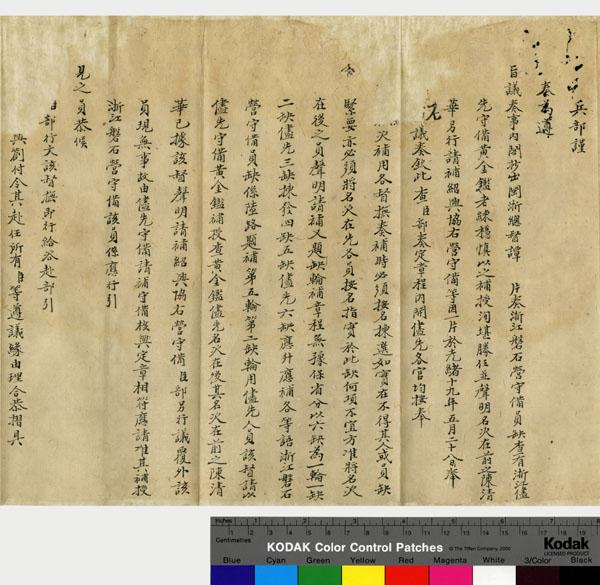 兵部謹
奏為遵
旨議奏事內閣抄出閩浙總督譚 片奏浙江磐石營守備員缺查有浙江儘
先守備黃金鑑老練穩慎以之補授洵堪勝任並聲明名次在前之陳清
華另行請補紹興協右營守備等因一片於光緒十九年五月二十八日奉
議奏欽此查臣部奏定章程內開儘先各官均按奉
次補用各督撫奏補時必須按名揀選如實在不得其人或員缺
緊要亦必須將名次在先各員按名指實於此缺何項不宜方准將名次
在後之員聲明請補又題缺輪補章程無豫保省分以六缺為一輪一缺
二缺儘先三缺揀發四缺五缺儘先六缺應升應補各等語浙江磐石
營守備員缺係陸路題補第五輪第二缺輪用儘先人員該督請以
儘先守備黃金鑑補授查黃金鑑儘先名次在後其名次在前之陳清
華已據該督聲明請補紹興協右營守備臣部另行議覆外該
員現無事故由儘先守備請補守備核與定章相符應請准其補授
浙江磐石營守備該員係應行引
見之員恭候
臣部行文該督撫即行給咨赴部引
與劄付令其赴任所有臣等遵議緣由理合恭摺具
inches 1 2 3 4 5 6 7 8
Centimetres 1 2 3 4 5 6 7 8 9 10 11 12 13 14 15 16 17 18 19
KODAK Color Control Patches © The Tiffen Company, 2000 Kodak
Blue Cyan Green Yellow Red Magenta White 3/Color Black